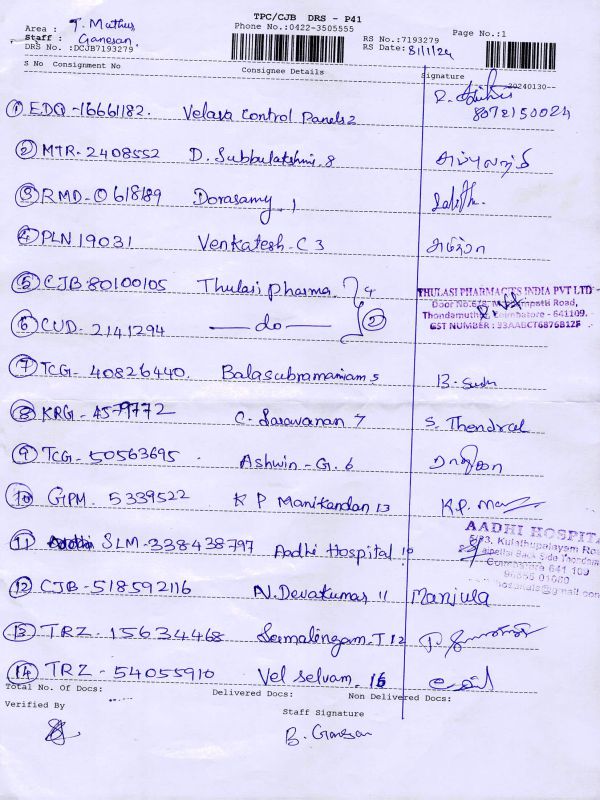 TPC/CJB DRS - P41
Area : T. Muthur Phone No.:0422-3505555 RS No.:7193279 Page No.:1
Staff : Ganesan. RS Date: 8/1/24
DRS No. :DCJB7193279
S No Consignment No Consignee Details Signature 20240130--
① EDQ - 16661182. Velava Control Panels 2 8072150024
② MTR - 2408552 D. Subbulakshmi. 8
③ RMD - 0618189 Dorasamy. 1
④ PLN 19031 Venkatesh - C 3
⑤ CJB 80100105 Thulasi Pharma. 4 THULASI PHARMACIES INDIA PVT LTD
Thondamuthur, Coimbatore - 641109.
⑥ CUD - 2141294 — do — ② GST NUMBER : 33AABCT6876B1ZF
⑦ TCG - 40826440. Balasubramaniam 5
⑧ KRG - 4579772 C. Saravanan 7 S. Thendral
⑨ TCG - 50563695 Ashwin - G. 6
⑩ GPM. 5339522 K P Manikandan 13
AADHI HOSPITA
⑪ SLM - 338438797 Aadhi Hospital 10 Kulathupalayam
Coimbatore 641 109
⑫ CJB - 518592116 N. Devakumar 11 Manjula
⑬ TRZ - 15634468 T 12
⑭ TRZ - 54055910 Vel Selvam. 16
Total No. Of Docs: Delivered Docs: Non Delivered Docs:
Verified By Staff Signature
B. Ganesan